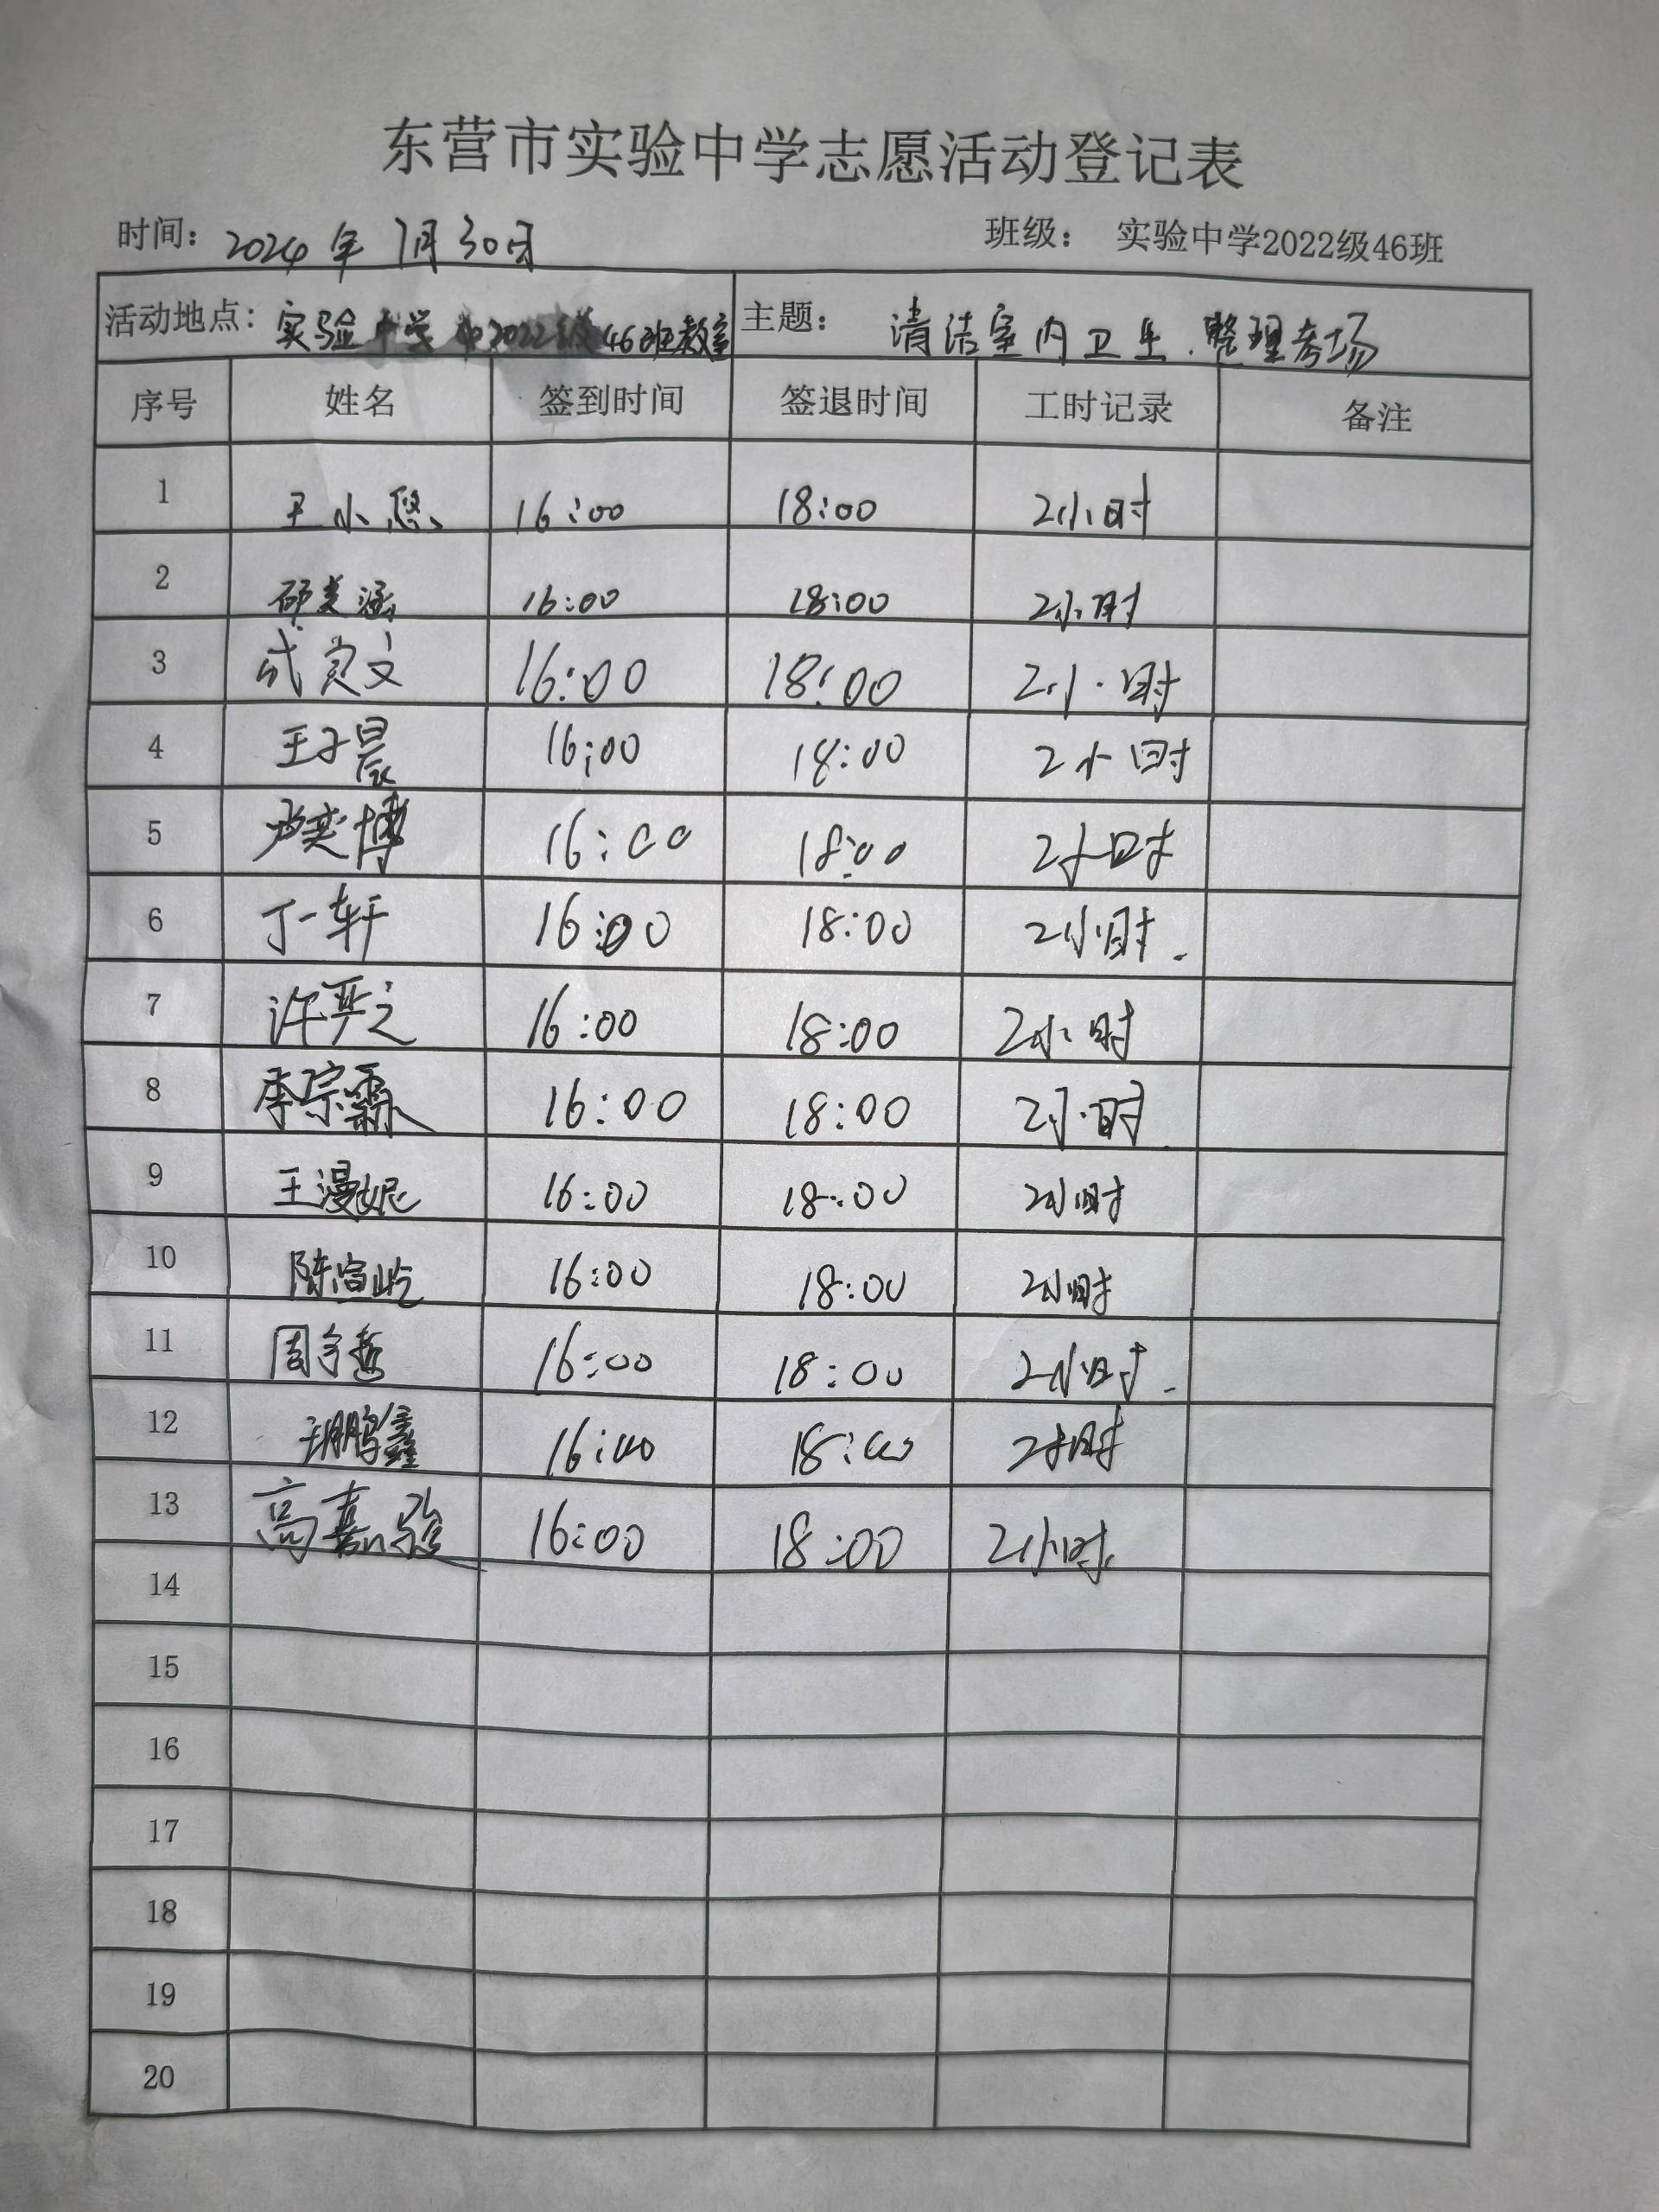 东营市实验中学志愿活动登记表
时间：2024年7月30日 班级： 实验中学2022级46班
活动地点：实验中学 2022级46班教室 主题： 清洁室内卫生.整理考场
序号 姓名 签到时间 签退时间 工时记录 备注
1 王小悠 16:00 18:00 2小时
2 邵美涵 16:00 18:00 2小时
3 成 文 16:00 18:00 2小时
4 王子晨 16:00 18:00 2小时
5 奕博 16:00 18:00 2小时
6 丁一轩 16:00 18:00 2小时.
7 许严之 16:00 18:00 2小时
8 李宗霖 16:00 18:00 2小时
9 王漫妮 16:00 18:00 2小时
10 陈 屹 16:00 18:00 2小时
11 周宇哲 16:00 18:00 2小时.
12 鹏鑫 16:00 18:00 2小时
13 高嘉骏 16:00 18:00 2小时
14
15
16
17
18
19
20